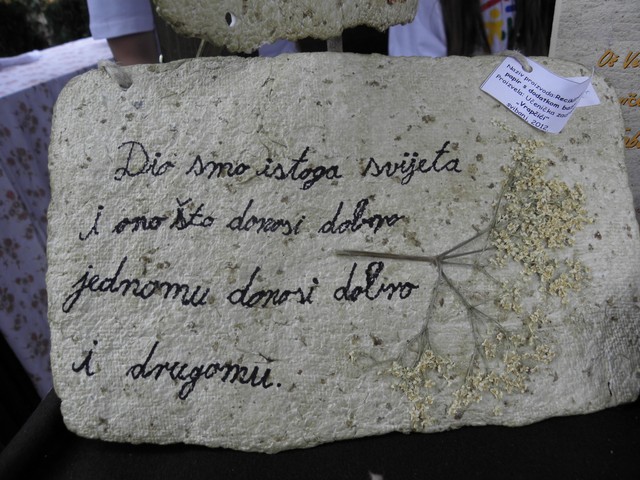 Dio smo istoga svijeta
i ono što donosi dobro
jednomu donosi dobro
i drugomu.
Naziv proizvoda: Reciklirani
papir s dodatkom
Proizvela: Učenička
„Vrapčići"
svibanj, 2012
Oš